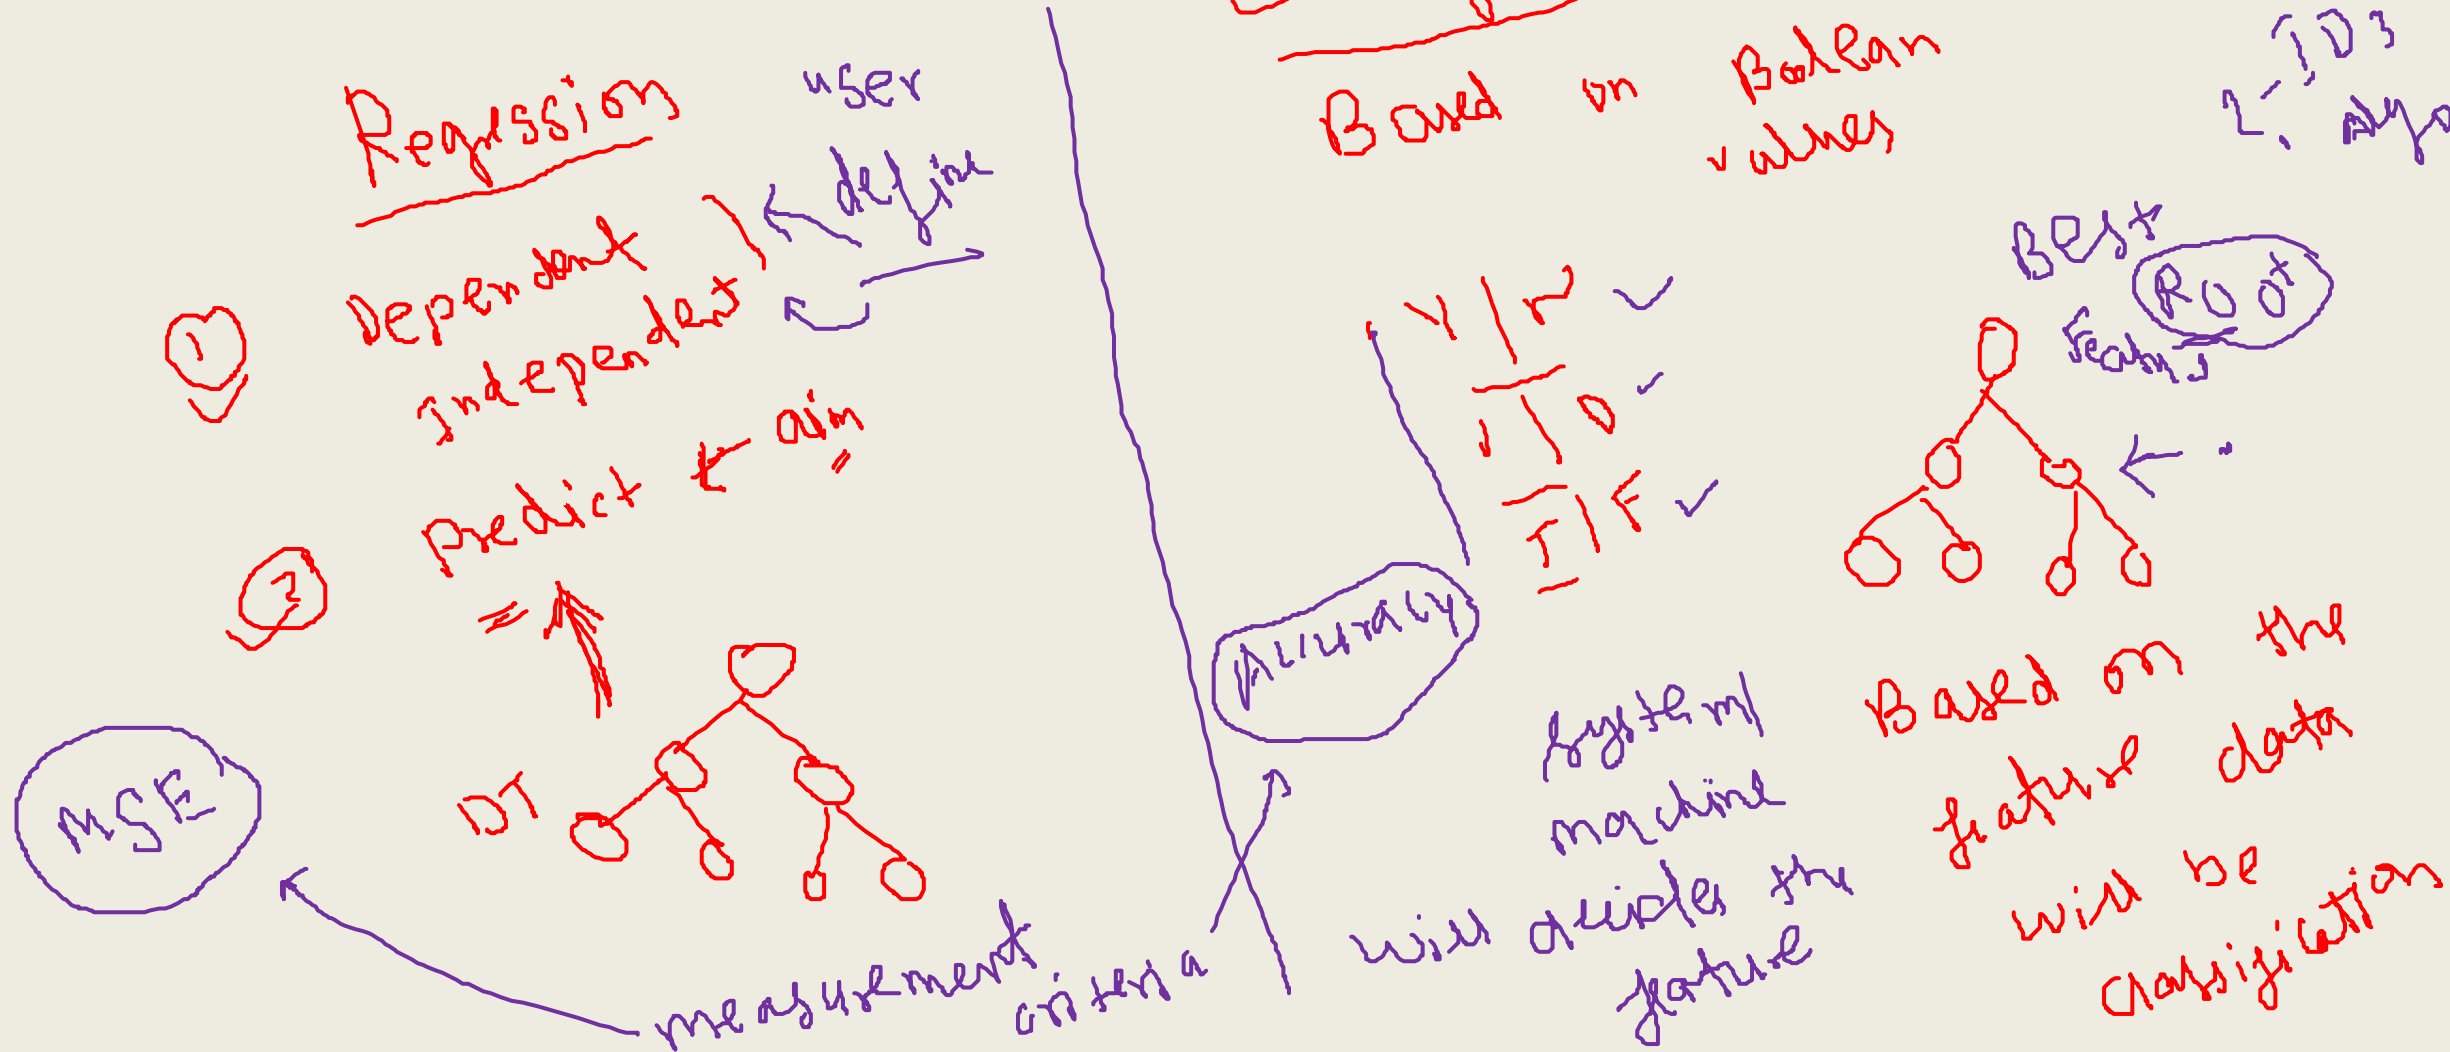 Regression
user
define
Dependent
independent
1
predict ← aim
2
DT
MSE
measurement
criteria
Based on Bolean
values
ID3
Y/N
1/0
T/F
Accuracy
BEST
Root
system/
machine
will decides the
feature
Based on the
feature data
will be
classification